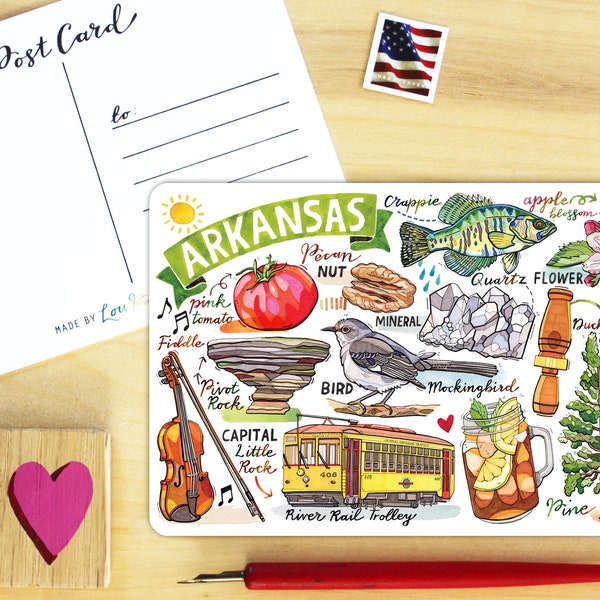 Post Card
to:
MADE BY
ARKANSAS
Crappie
apple
blossom
Pecan
NUT
Quartz
FLOWER
pink
tomato
MINERAL
Fiddle
Pivot
Rock
BIRD
Mockingbird
CAPITAL
Little
Rock
408
408
River Rail Trolley
Pine